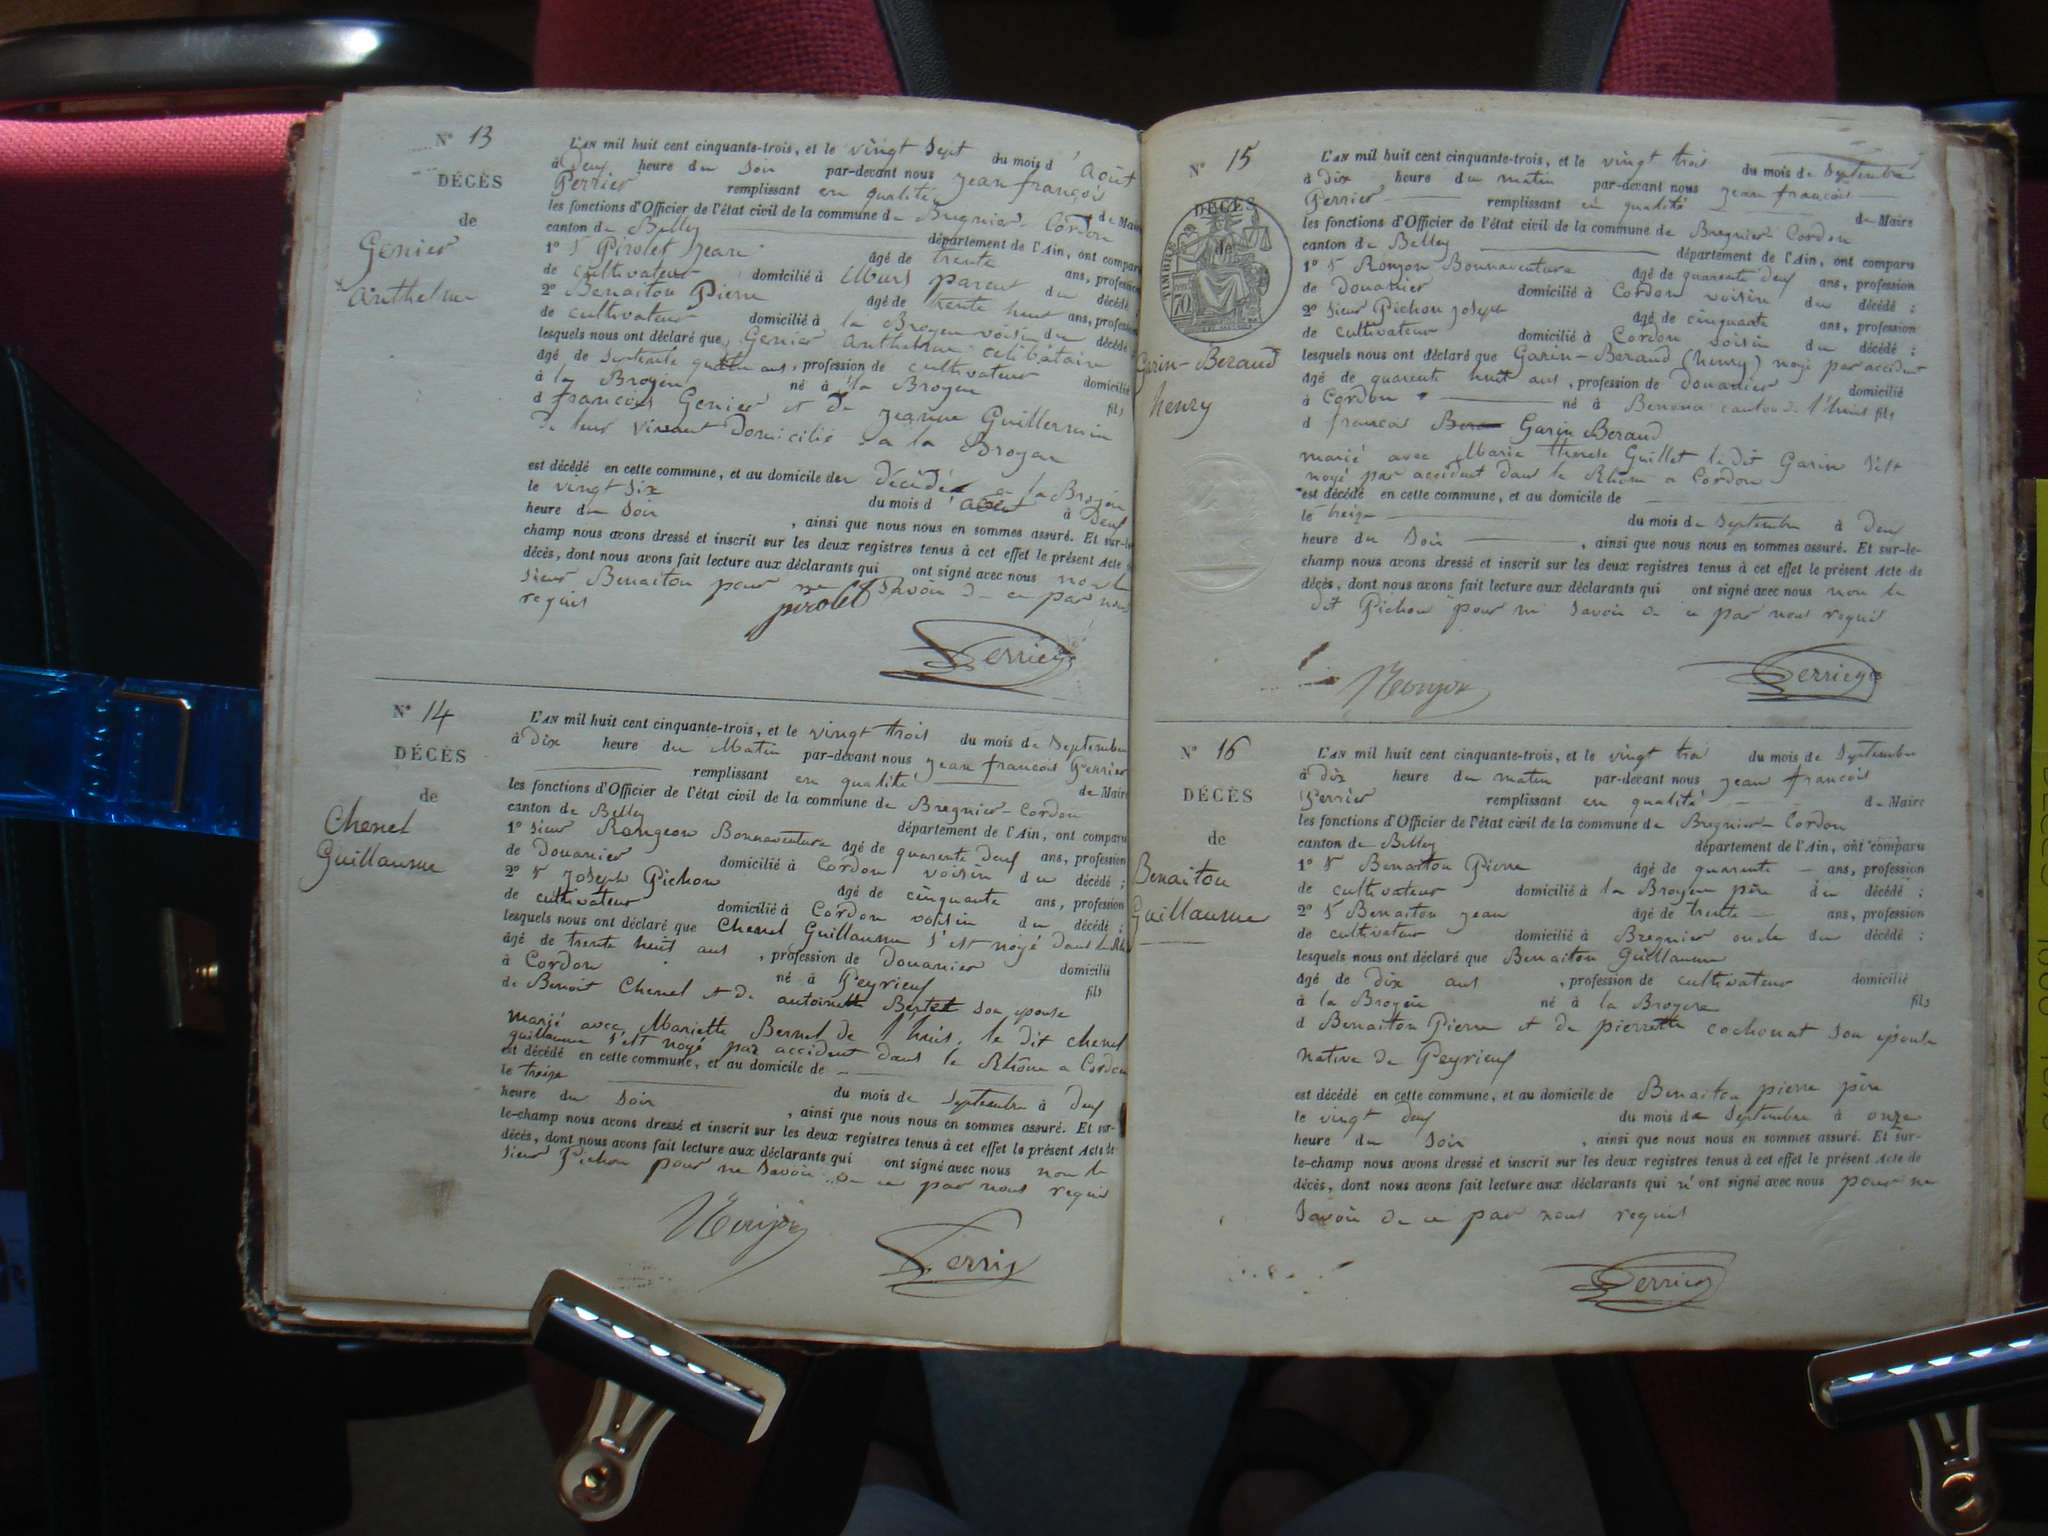 N° 13
DÉCÈS
de
Genier
Anthelme
L'AN mil huit cent cinquante-trois, et le vingt sept du mois d'Août
à deux heure du soir par-devant nous jean françois
Perrier remplissant en qualité de Maire
les fonctions d'Officier de l'état civil de la commune de Bregnier-Cordon
canton de Belley département de l'Ain, ont comparu
1° S Pirolet jean âgé de trente ans, profession
de cultivateur domicilié à Murs parent du décédé
2° Benaiton Pierre âgé de trente huit ans, profession
de cultivateur domicilié à la Broyer voisin du décédé
lesquels nous ont déclaré que Genier anthelme celibataire
âgé de septente quatre ans, profession de cultivateur domicilié
à la Broyer né à la Broyer fils
d françois Genier et de jeanne Guillermin
de leur vivant domicilié a la Broyer
est décédé en cette commune, et au domicile de décédé a la Broyer
le vingt six du mois d'août à deux
heure du soir , ainsi que nous nous en sommes assuré. Et sur-le-
champ nous avons dressé et inscrit sur les deux registres tenus à cet effet le présent Acte de
décès, dont nous avons fait lecture aux déclarants qui ont signé avec nous non le
sieur Benaiton pour ne savoir de ce par nous
requis pirolet
Perrier
N° 14
DÉCÈS
de
Chenel
Guillaume
L'AN mil huit cent cinquante-trois, et le vingt trois du mois de Septembre
à dix heure du Matin par-devant nous jean francois Perrier
remplissant en qualité de Maire
les fonctions d'Officier de l'état civil de la commune de Bregnier-Cordon
canton de Belley département de l'Ain, ont comparu
1° sieur Rongeon Bonnaventure âgé de quarente deux ans, profession
de douanier domicilié à Cordon voisin du décédé ;
2° S joseph Pichon âgé de cinquante ans, profession
de cultivateur domicilié à Cordon voisin du décédé ;
lesquels nous ont déclaré que Chenel Guillaume s'est noyé dans le
âgé de trente huit ans , profession de douanier domicilié
à Cordon né à Peyrieux fils
de Benoit Chenel et de antoinette Bertet son epouse
marié avec Mariette Bernel de l'huis, le dit chenel
guillaume s'est noyé par accident dans le Rhône a Cordon
est décédé en cette commune, et au domicile de
le treize du mois de septembre à deux
heure du soir , ainsi que nous nous en sommes assuré. Et sur-
le-champ nous avons dressé et inscrit sur les deux registres tenus à cet effet le présent Acte de
décès, dont nous avons fait lecture aux déclarants qui ont signé avec nous non le
sieur Pichon pour ne savoir de ce par nous requis
Perrier
N° 15
DÉCÈS
de
TIMBRE
70
Garin-Beraud
henry
L'AN mil huit cent cinquante-trois, et le vingt trois du mois de Septembre
à dix heure du matin par-devant nous jean francois
Perrier remplissant en qualité de Maire
les fonctions d'Officier de l'état civil de la commune de Bregnier-Cordon
canton de Belley département de l'Ain, ont comparu
1° S Ronjon Bonnaventure âgé de quarente deux ans, profession
de Douanier domicilié à Cordon voisin du décédé ;
2° sieur Pichon joseph âgé de cinquante ans, profession
de cultivateur domicilié à Cordon voisin du décédé ;
lesquels nous ont déclaré que Garin-Beraud (henry) noyé par accident
âgé de quarente huit ans , profession de Douanier domicilié
à Cordon né à Benona canton de l'huis fils
d francois Garin Beraud
marié avec Marie therese Guillet le dit Garin s'est
noyé par accident dans le Rhône a Cordon
est décédé en cette commune, et au domicile de
le treize du mois de septembre à deux
heure du soir , ainsi que nous nous en sommes assuré. Et sur-le-
champ nous avons dressé et inscrit sur les deux registres tenus à cet effet le présent Acte de
décès, dont nous avons fait lecture aux déclarants qui ont signé avec nous non le
dit Pichon pour ne savoir de ce par nous requis
Perrier
N° 16
DÉCÈS
de
Benaiton
Guillaume
L'AN mil huit cent cinquante-trois, et le vingt troi du mois de Septembre
à dix heure du matin par-devant nous jean françois
Perrier remplissant en qualité de Maire
les fonctions d'Officier de l'état civil de la commune de Bregnier-Cordon
canton de Belley département de l'Ain, ont comparu
1° S Benaiton Pierre âgé de quarente ans, profession
de cultivateur domicilié à la Broyer père du décédé ;
2° S Benaiton jean âgé de trente ans, profession
de cultivateur domicilié à Bregnier oncle du décédé ;
lesquels nous ont déclaré que Benaiton Guillaume
âgé de dix ans , profession de cultivateur domicilié
à la Broyer né à la Broyere fils
d Benaiton Pierre et de pierrette cochonat son épouse
native de Peyrieux
est décédé en cette commune, et au domicile de Benaiton pierre père
le vingt deux du mois de septembre à onze
heure du soir , ainsi que nous nous en sommes assuré. Et sur-
le-champ nous avons dressé et inscrit sur les deux registres tenus à cet effet le présent Acte de
décès, dont nous avons fait lecture aux déclarants qui n'ont signé avec nous pour ne
savoir de ce par nous requis
Perrier